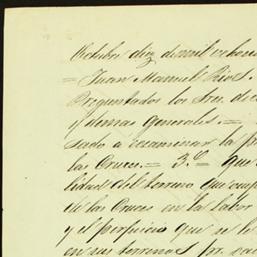 Octubre diez de mil ochoci
= Juan Manuel Rios.
Preguntados los Sres. de
y demas generales. =
sado á examinar la pr
las Cruces. = 3.º Que
lidad del terreno que ocup
de las Cruces en la labor
y el perjuicio que se le
en sus terrenos pr. sa